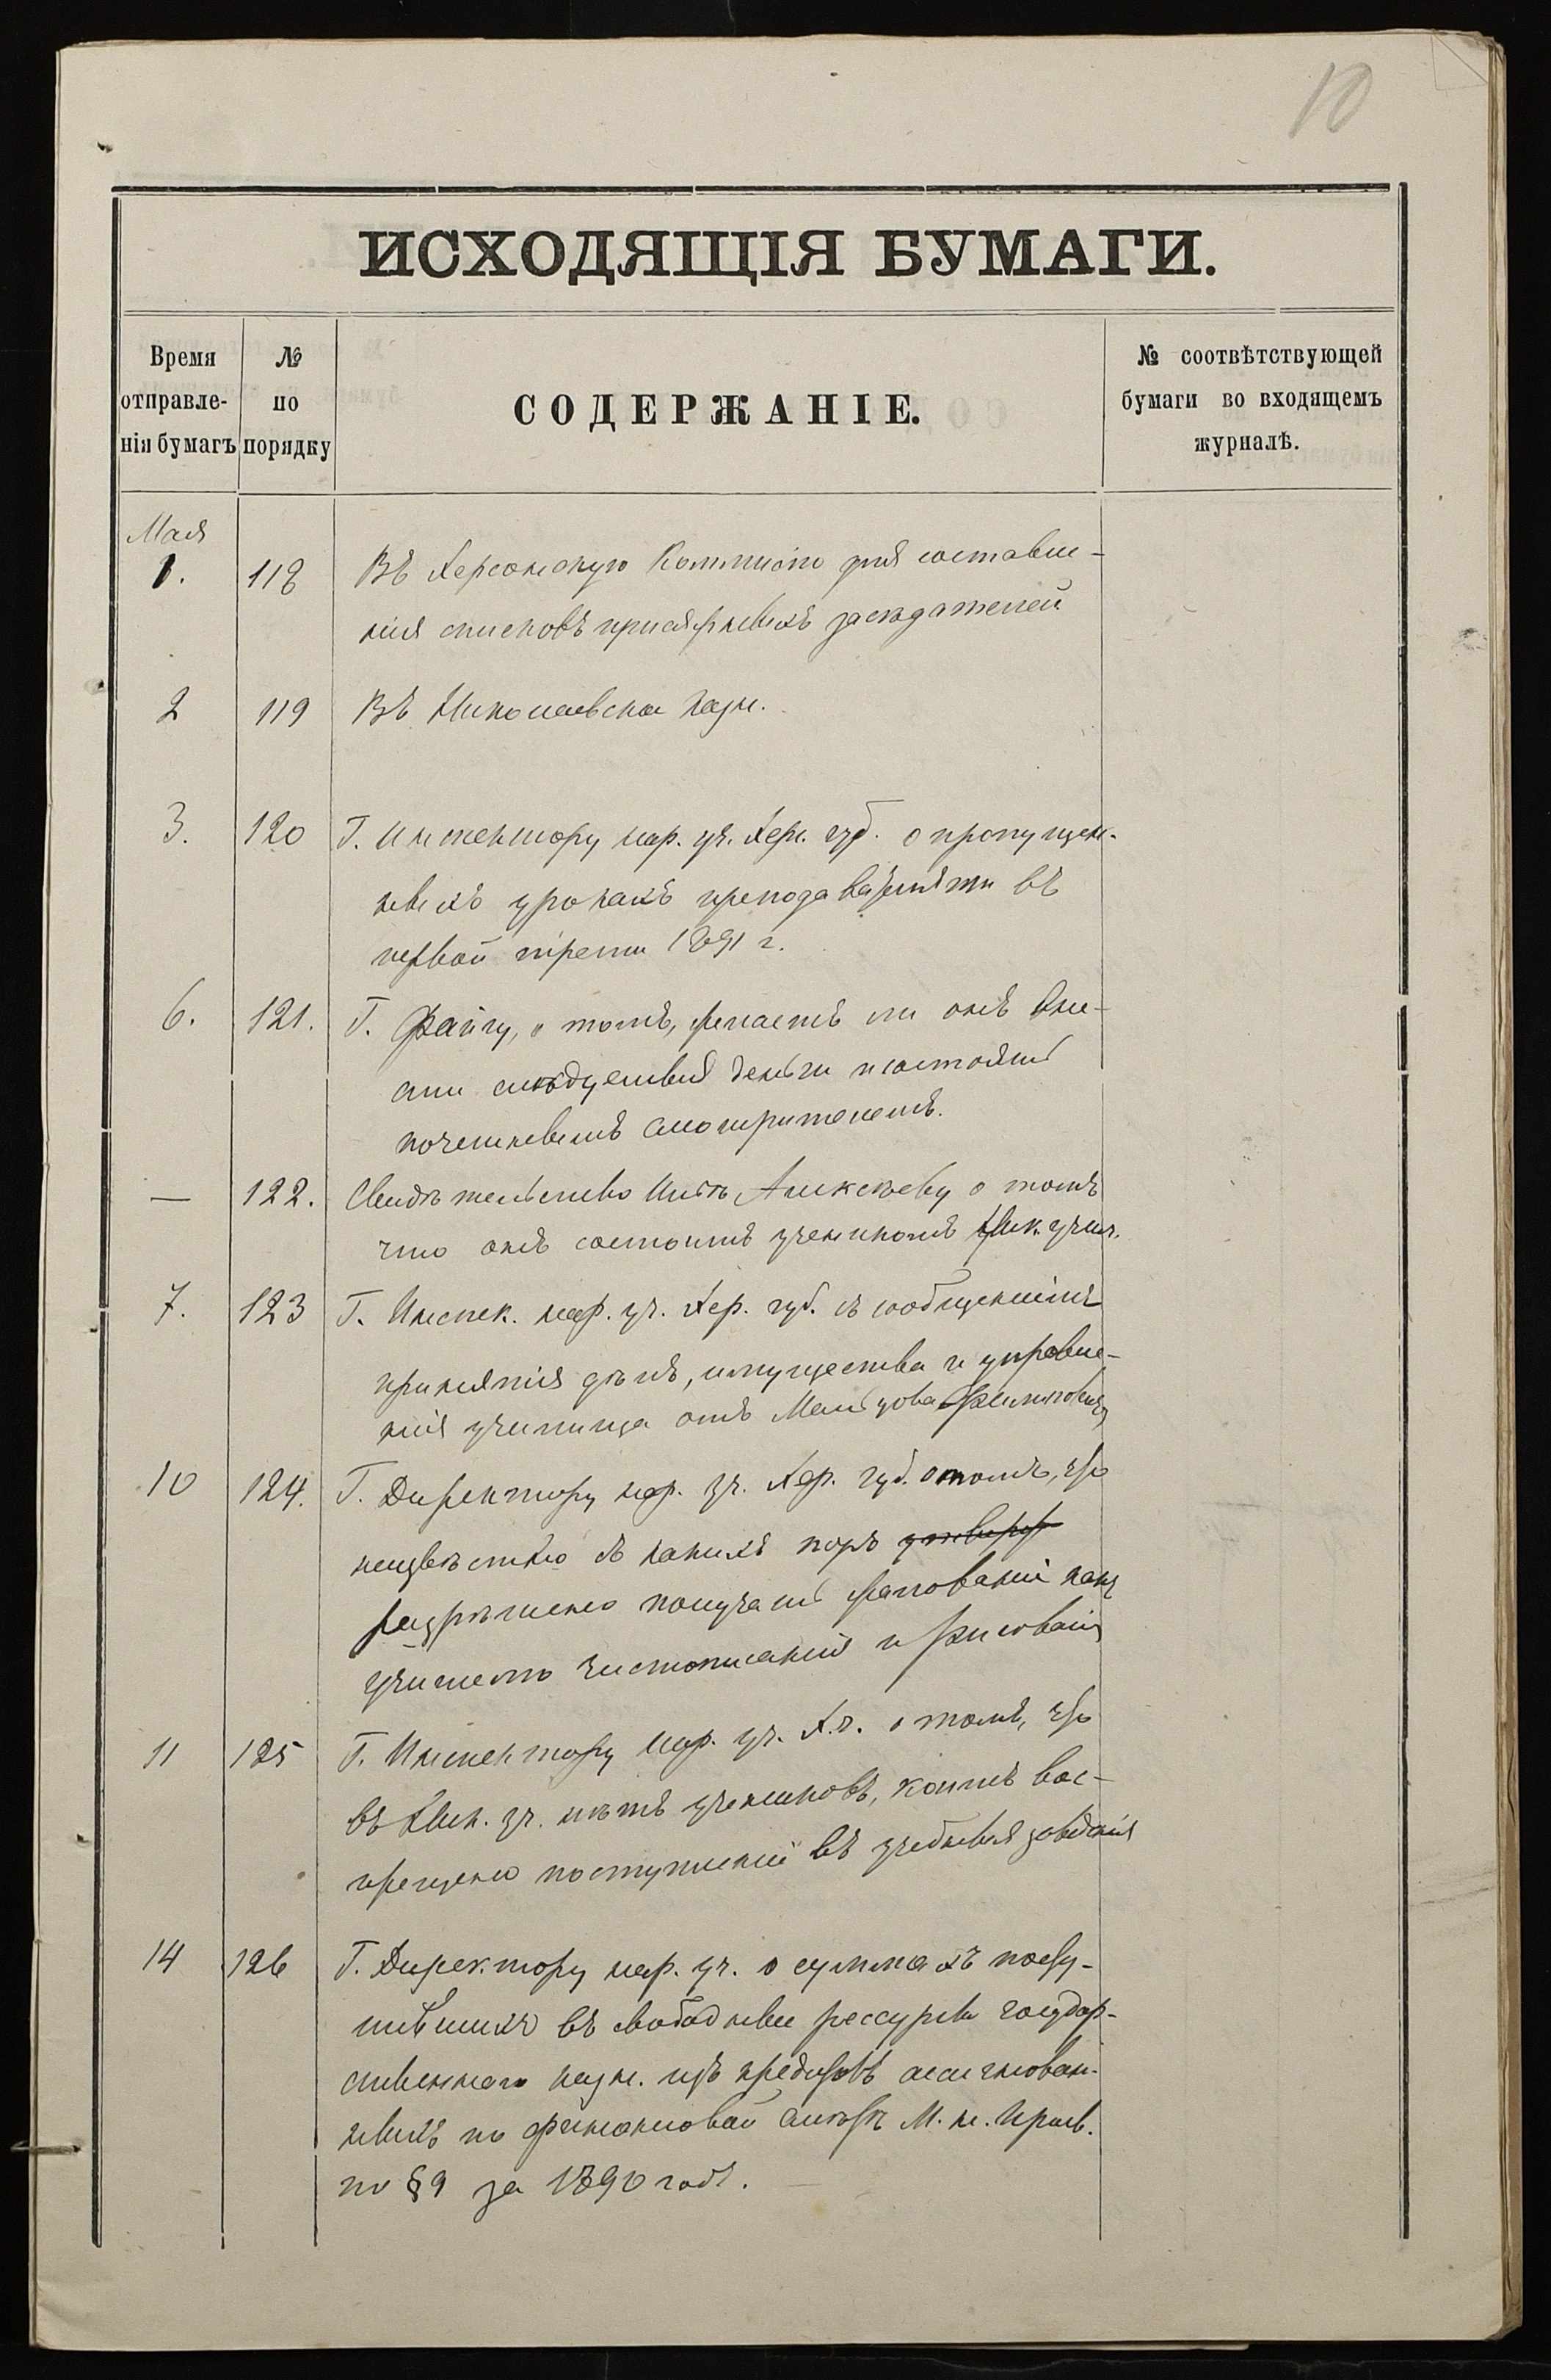 10
ИСХОДЯЩІЯ БУМАГИ.
Время
отправле-
нія бумагъ
№
по
порядку
СОДЕРЖАНІЕ.
№ соотвѣтствующей
бумаги во входящемъ
журналѣ.
Мая
1. 118 Въ Херсонскую Коммисію для составле-
нія списковъ присяжныхъ засѣдателей
2 119 Въ Николаевское Казн.
3. 120 Г. Инспектору нар. уч. Херс. губ. о пропущен-
ныхъ урокахъ преподавателями въ
первой трети 1891 г.
6. 121. Г. Файгу, о томъ, желаетъ ли онъ вне-
сти слѣдуемыя деньги и состоять
почетнымъ смотрителемъ.
— 122. Свидѣтельство Алексѣеву о томъ
что онъ состоитъ ученикомъ учил.
7. 123 Г. Инспек. нар. уч. Хер. губ. съ сообщеніемъ
принятія дѣлъ, имущества и управле-
нія училища отъ Мальцова
10 124. Г. Директору нар. уч. Хер. губ. о томъ, что
неизвѣстно съ какихъ поръ утверж
разрѣшено получать жалованіе
учителю чистописанія и рисованія
11 125 Г. Инспектору нар. уч. Х.г. о томъ, что
въ уч. нѣтъ учениковъ, коимъ вос-
прещено поступленіе въ учебныя заведенія
14 126 Г. Директору нар. уч. о суммахъ посту-
пившихъ въ свободные рессурсы государ-
ственнаго казн. изъ кредитовъ ассигнован-
ныхъ по финансовой смѣтѣ М. н. Просв.
по §9 за 1890 годъ.